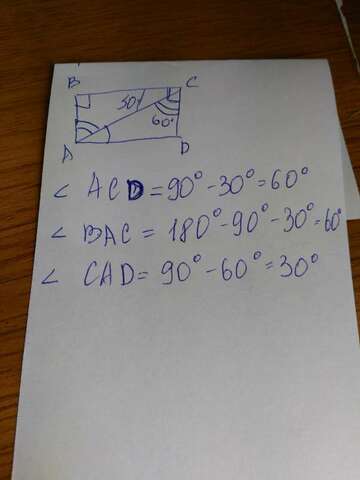 B C
30° 60°
A D
∠ ACD = 90° - 30° = 60°
∠ BAC = 180° - 90° - 30° = 60°
∠ CAD = 90° - 60° = 30°